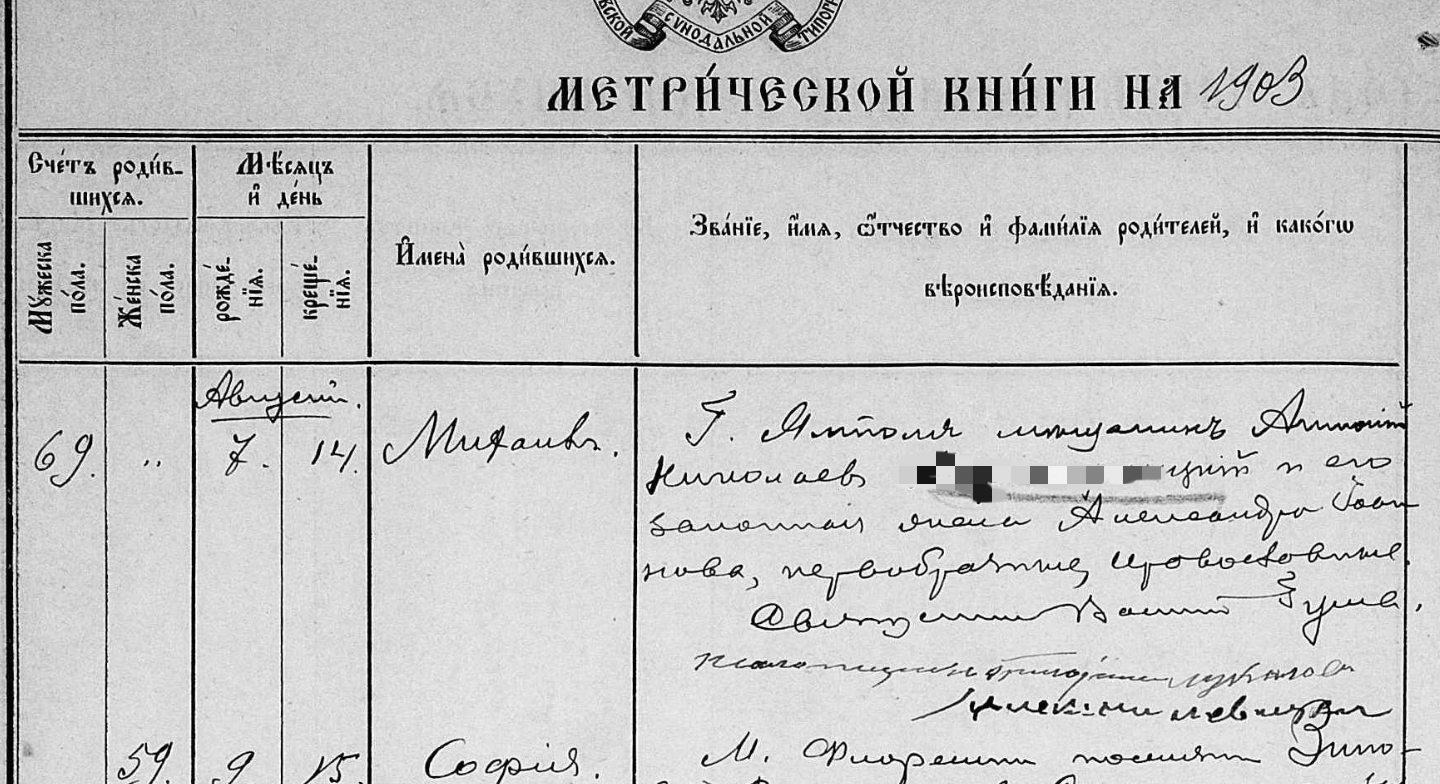 СѴНОДАЛЬНОЙ
МЕТРИ́ЧЕСКОЙ КНИ́ГИ НА 1903
Сче́тъ роди́в-
шихсѧ.
Мѣ́сѧцъ
и҆ де́нь
И҆мена̀ роди́вшихсѧ.
Зва́нїе, и҆́мѧ, ѻ҆́тчество и҆ фами́лїѧ роди́телей, и҆ како́гѡ
вѣроисповѣ́данїѧ.
Мꙋ́жеска
по́ла.
Же́нска
по́ла.
рожде́-
нїѧ.
креще́-
нїѧ.
Августъ.
69. " 7. 14. Михаилъ.
Г. Ямполя мѣщанинъ Антоній
Николаев цкій и его
законная жена Александра Іоан
нова, первобрачные, православные.
59. 9 15. Софія.
М. Флорешты